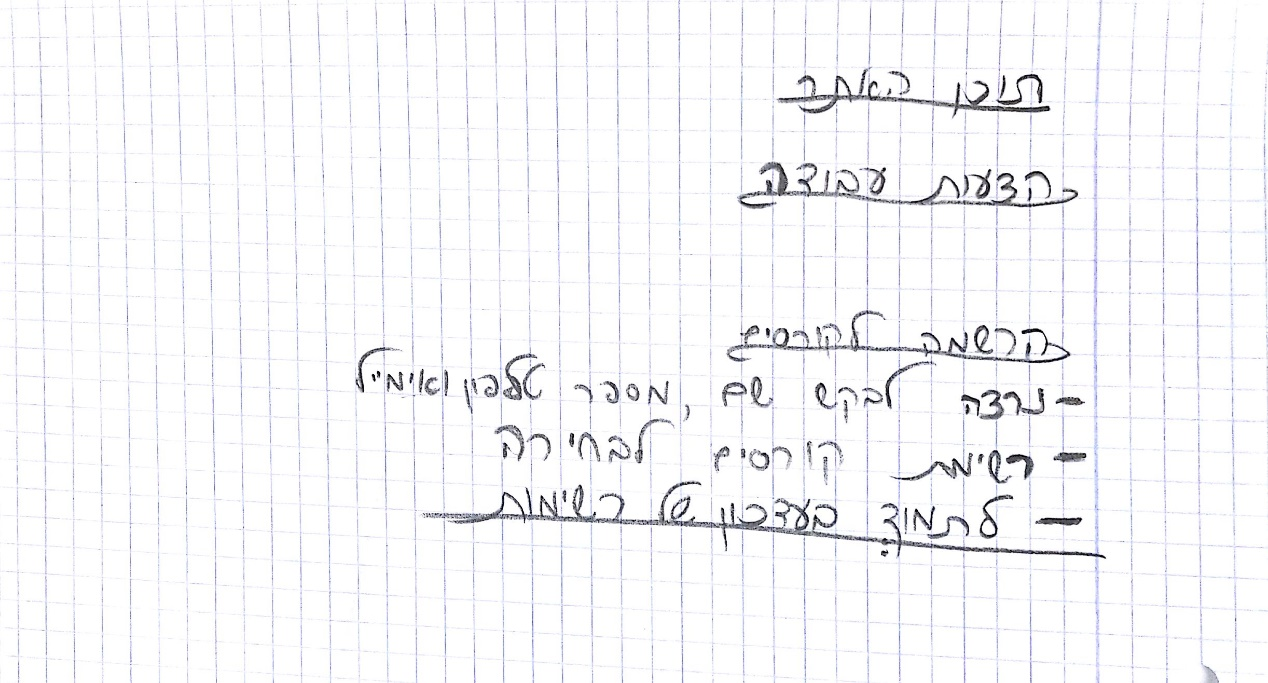 תוכן האתר
הצעות עבודה
הרשמה לקורסים
- נרצה לבקש שם, מספר טלפון ואימייל
- רשימת קורסים לבחירה
- לתמוך בעדכון של רשימות